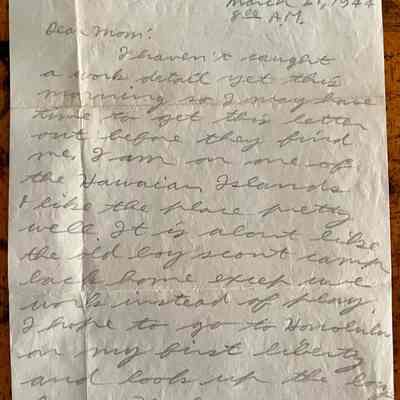 March 21, 1944
8:00 A.M.
Dear Mom:
I haven't caught
a work detail yet this
morning so I may have
time to get this letter
out before they find
me. I am on one of
the Hawaian Islands
& like the place pretty
well. It is about like
the old boy scout camp
back home excep we
work instead of play.
I hope to go to Honolulu
on my first liberty
and look up the